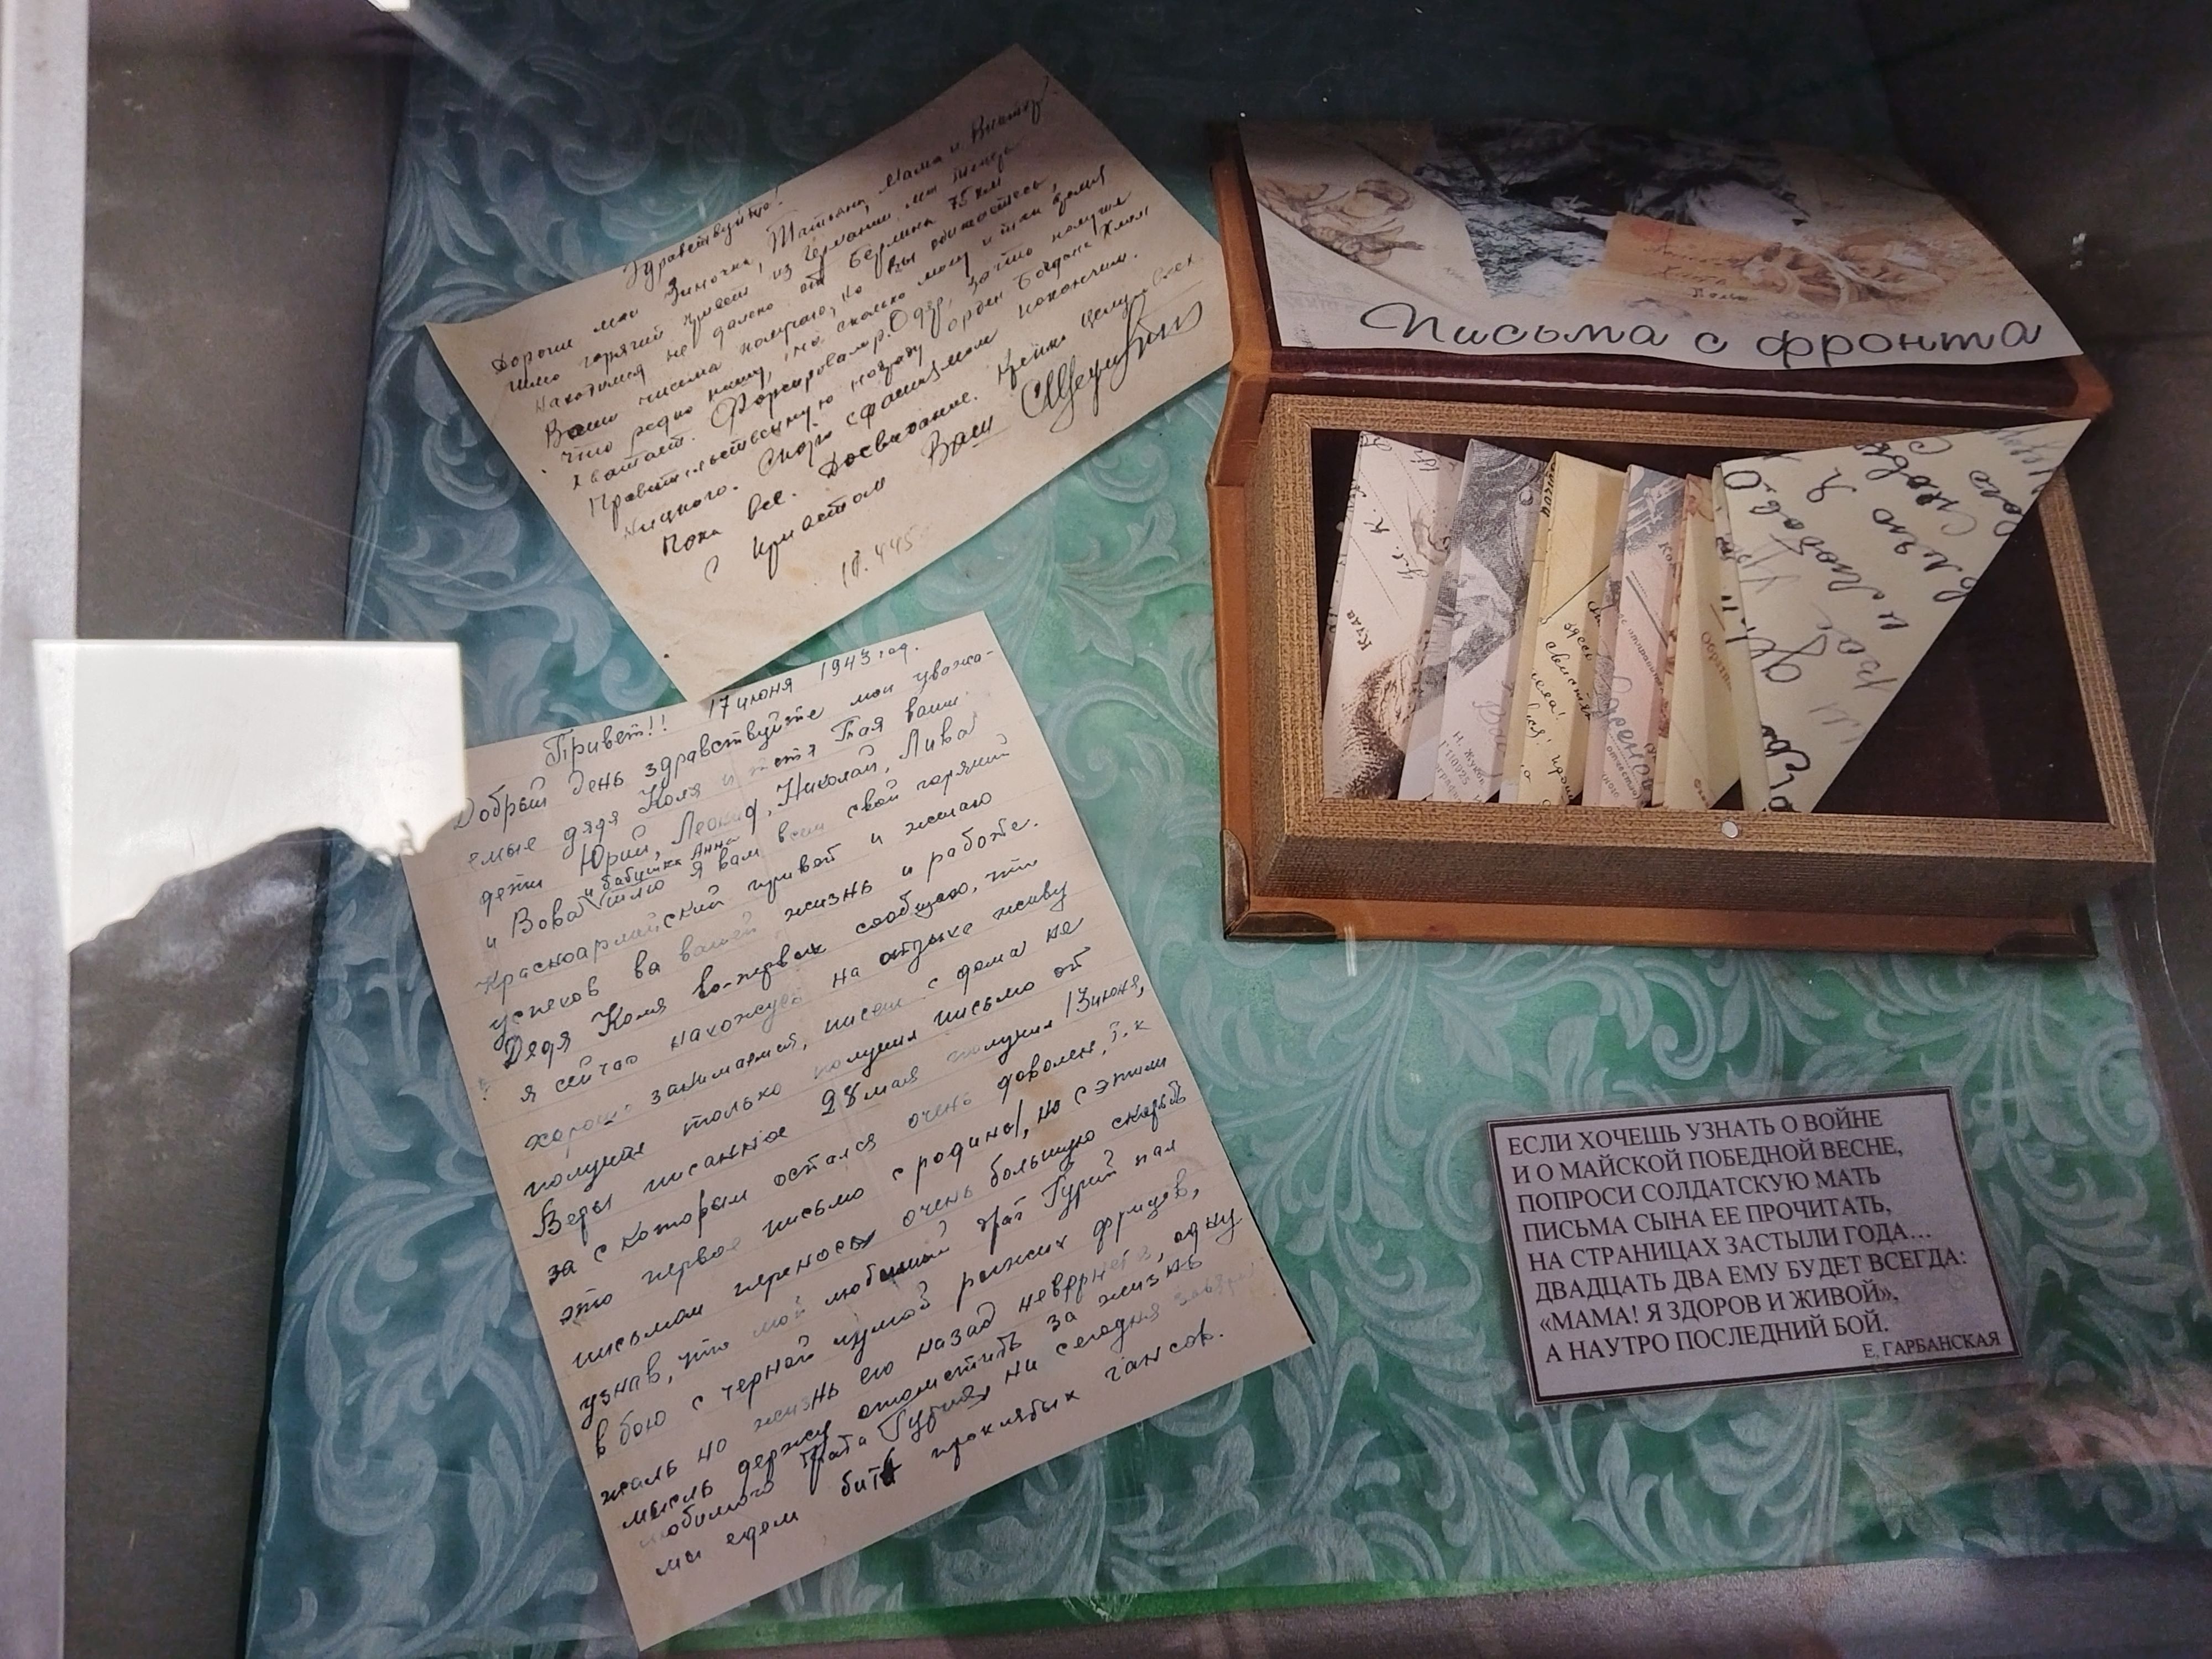 Здравствуйте!
Дорогие мои Зиночка, Татьяна, Мама и Виктор
шлю горячий привет из Германии мы теперь
находимся не далеко от Берлина 75 км
Ваши письма получаю, но Вы обижаетесь,
что редко пишу, но сколько могу и так время
хватает. Форсировали р. Одер, за что получил
Правительственную награду орден Богдана Хмел
ницкого. Скоро с фашизмом покончим.
Пока все. Досвидание. Крепко целую всех.
С приветом Ваш
17 июня 1943 год.
Привет!!
Добрый день здравствуйте мои уважа-
емые дядя Коля и тетя Тая ваши
дети Юрий, Леонид, Николай, Лива
и бабушка Анна
и Вова шлю я вам всем свой горячий
Красноармейский привет и желаю
успехов ва вашей жизнь и работе.
Дядя Коля во-первых сообщаю, что
я сейчас нахожусь на отдыхе живу
хорошо занимаемся, писем с дома не
получал только получил письмо от
Веры писанное 28 мая получил 13 июня,
за с которым остался очень доволен, т.к
это первое письмо с родины, но с этим
письмом перенося очень большую скорбь
узнав, что мой любимый брат Гурий пал
в бою с черной чумой рыжих фрицев,
жаль но жизнь его назад невернеш, одну
мысль держу отомстить за жизнь
любимого брата Гурия ни сегодня завтра
мы едем бить проклятых гансов.
Письма с фронта
ЕСЛИ ХОЧЕШЬ УЗНАТЬ О ВОЙНЕ
И О МАЙСКОЙ ПОБЕДНОЙ ВЕСНЕ,
ПОПРОСИ СОЛДАТСКУЮ МАТЬ
ПИСЬМА СЫНА ЕЕ ПРОЧИТАТЬ,
НА СТРАНИЦАХ ЗАСТЫЛИ ГОДА...
ДВАДЦАТЬ ДВА ЕМУ БУДЕТ ВСЕГДА:
«МАМА! Я ЗДОРОВ И ЖИВОЙ»,
А НАУТРО ПОСЛЕДНИЙ БОЙ.
Е. ГАРБАНСКАЯ